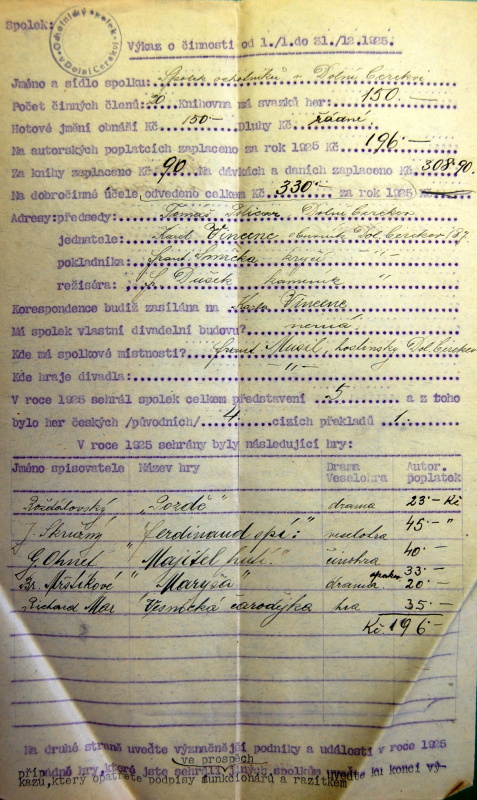 Spolek:
Ochotnický spolek v Dolní Cerekvi
Výkaz o činnosti od 1./1.do 31./12.1925.
Jméno a sídlo spolku: Spolek ochotníků v Dolní Cerekvi
Počet činných členů: 20 Knihovna má svazků her: 150.—
Hotové jmění obnáší Kč 150— Dluhy Kč řádné
Na autorských poplatcích zaplaceno za rok 1925 Kč 196.—
Za knihy zaplaceno Kč 90 Na dávkách a daních zaplaceno Kč 308.90.
Na dobročinné účele odvedeno celkem Kč 330.— za rok 1925
Adresy:předsedy: Tomáš Dolní Cerekev
jednatele: Karel Vincenc obuvník Dol. Cerekev /87.
pokladníka: Frant. Smrčka krejčí —"—
režiséra: Dušek kameník "
Korespondence budiž zasílána na Karla Vincenc
Má spolek vlastní divadelní budovu? nemá.
Kde má spolkové místnosti? Musil, hostinský Dol. Cerekev
Kde hraje divadla: —"—
V roce 1925 sehrál spolek celkem představení 5 a z toho
bylo her českých /původních/ 4 cizích překladů 1.
V roce 1925 sehrány byly následující hry:
Jméno spisovatele Název hry Drama Veselohra Autor. poplatek
"Pozdě" drama 23.— Kč
J. Skružný "Ferdinand spí:" veselohra 45.— "
G. Ohnet "Majitel hutí." činohra 40.—
Br. Mrštíkové "Maryša" drama opakov. 33.— 20.—
Richard Mar Vesnická čarodějka hra 35.—
Kč 196.—
Na druhé straně uveďte význačnější podniky a události v roce 1925
případně hry,které jste sehráli ve prospěch jiných spolkům uveďte ku konci vý-
kazu,který opatřete podpisy funkcionářů a razítkem